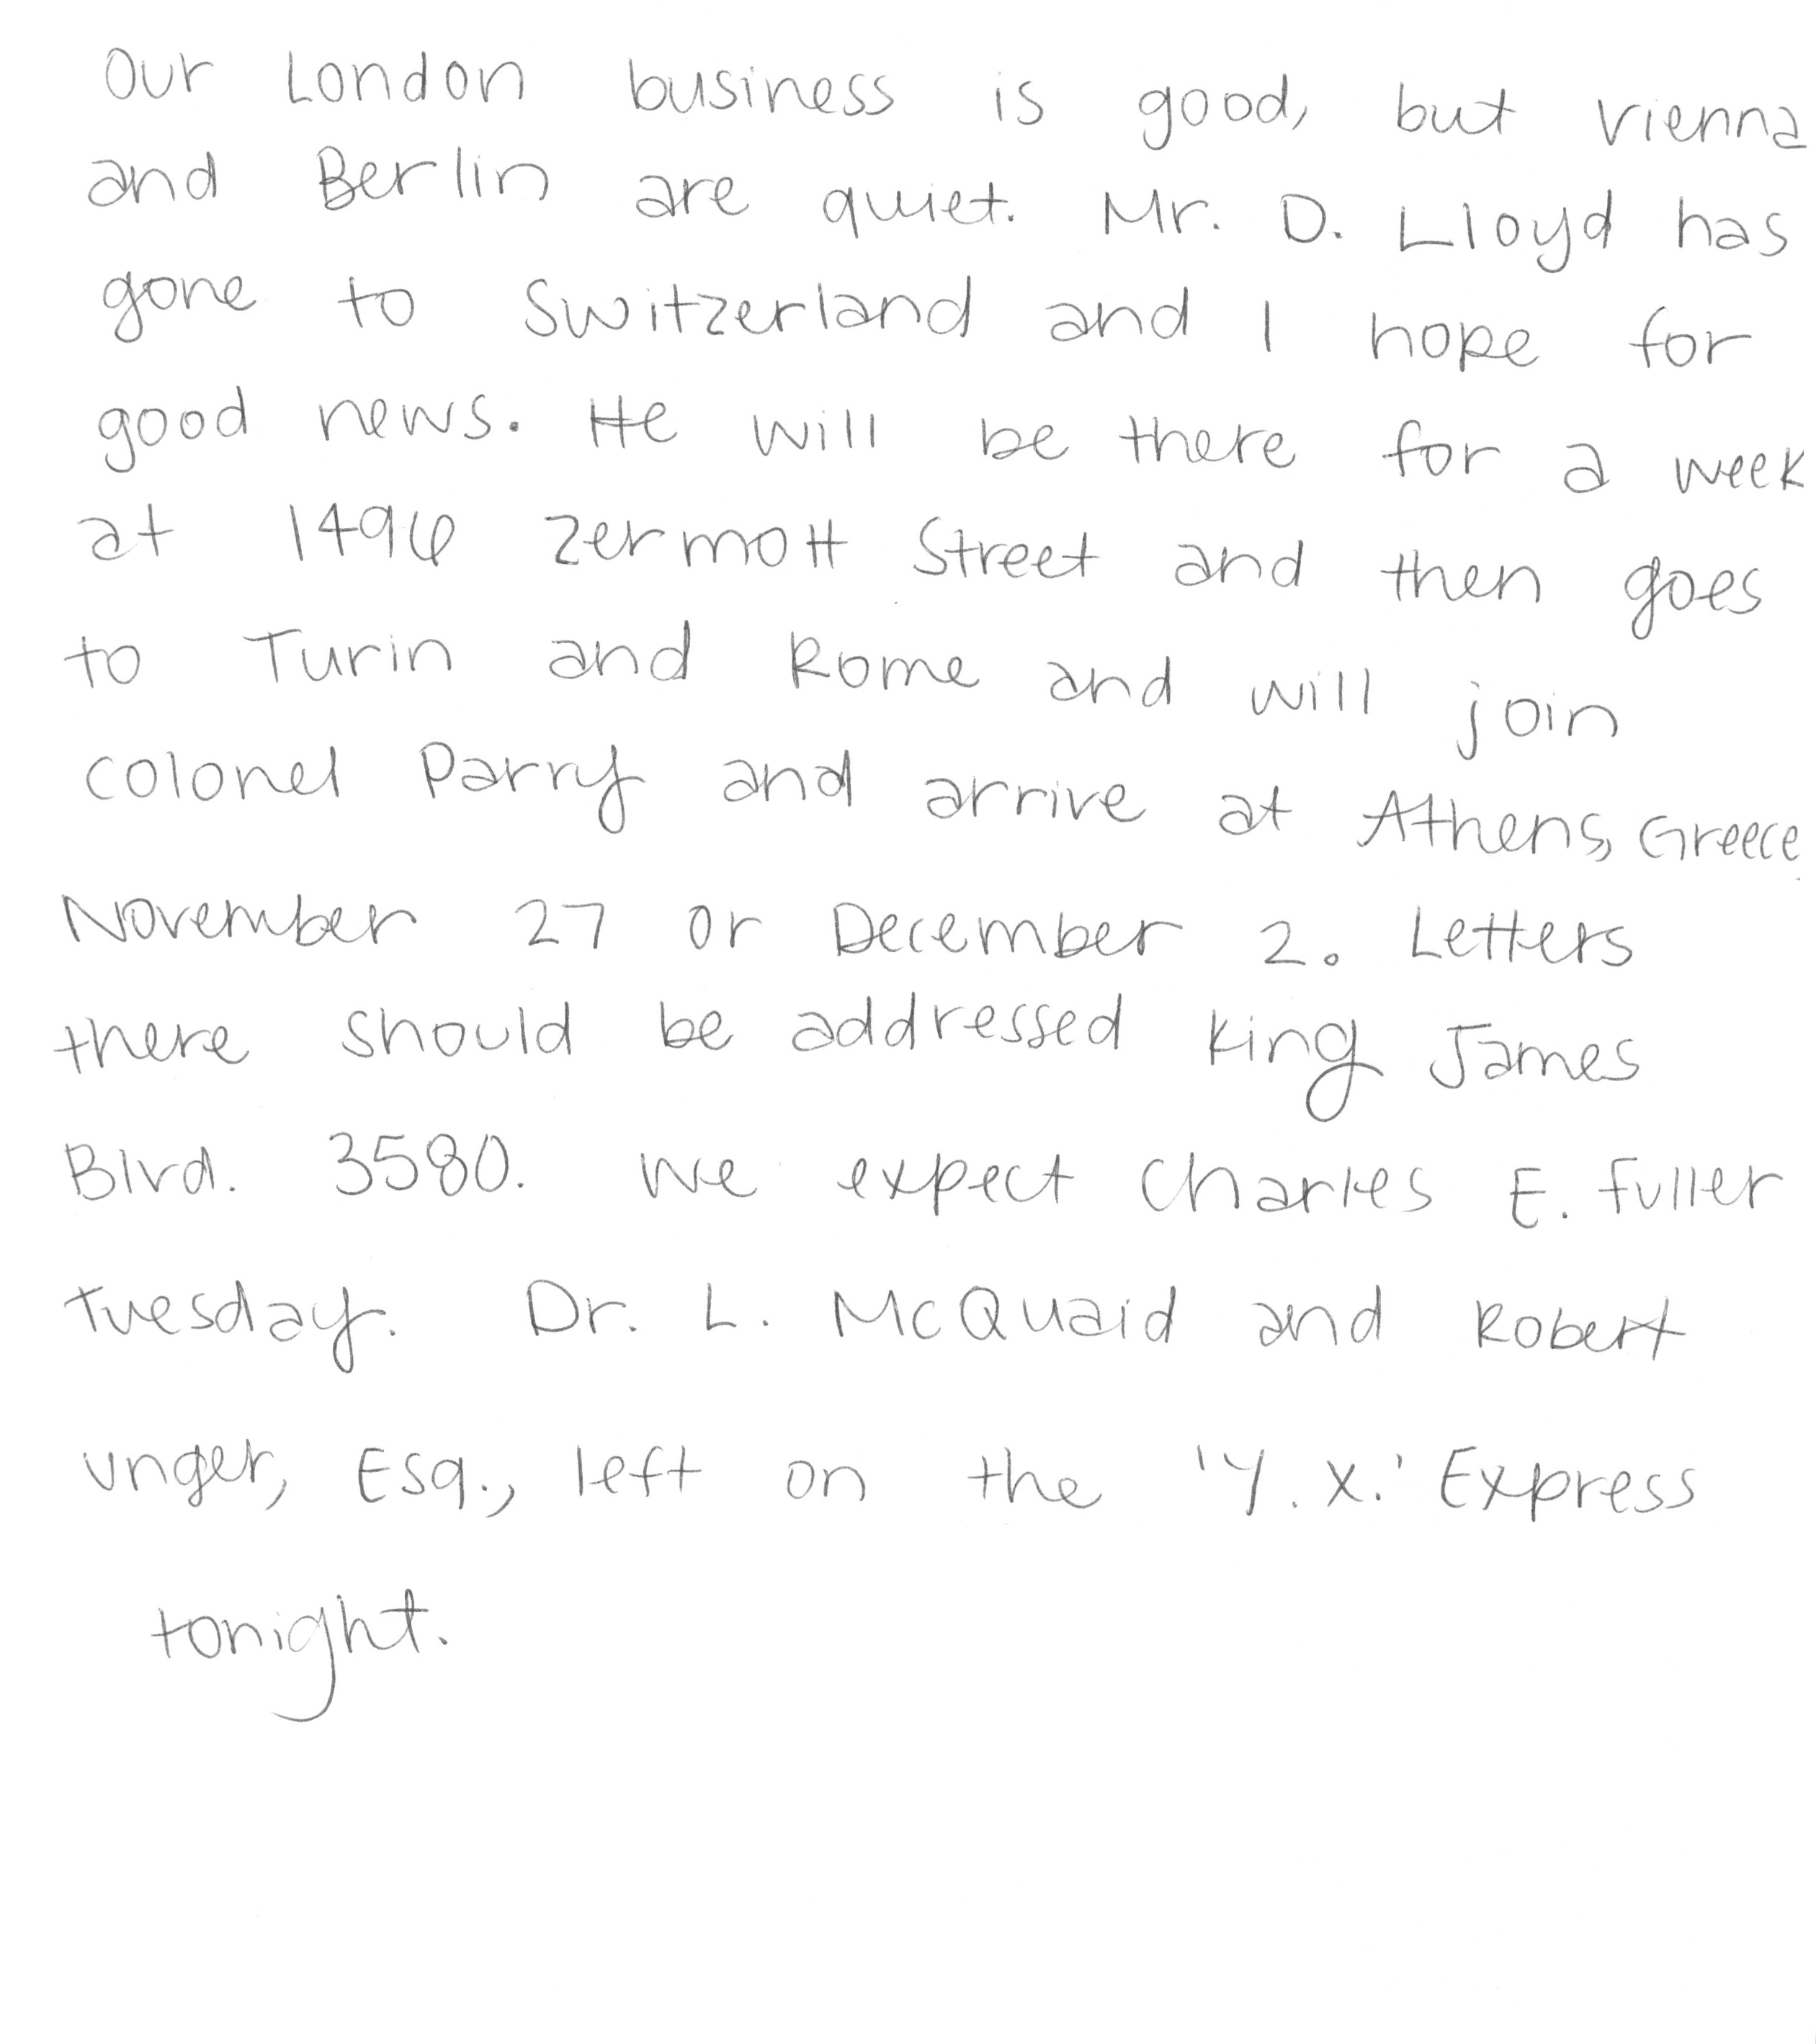 Our London business is good, but Vienna
and Berlin are quiet. Mr. D. Lloyd has
gone to Switzerland and I hope for
good news. He will be there for a week
at 1496 Zermott Street and then goes
to Turin and Rome and will join
Colonel Parry and arrive at Athens, Greece
November 27 or December 2. Letters
there should be addressed King James
Blvd. 3580. We expect Charles E. Fuller
Tuesday. Dr. L. McQuaid and Robert
Unger, Esq., left on the 'Y.X.' Express
tonight.